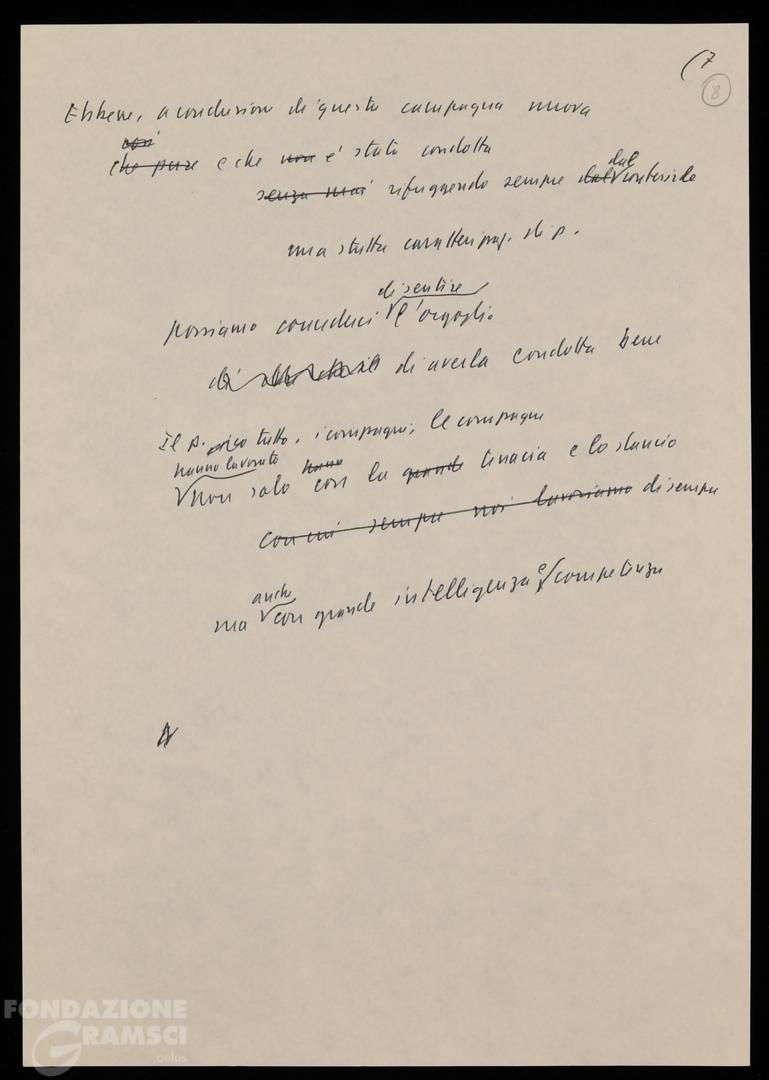 (7
8
Ebbene, a conclusione di questa campagna nuova
così
che pure e che non è stata condotta
dal
senza mai rifuggendo sempre dal
ma stata
di sentire
possiamo concederci l'orgoglio
di di averla condotta bene
Il p. tutto, i compagni, le compagne
hanno lavorato hanno
non solo con la grande tenacia e lo slancio
con cui sempre noi lavoriamo di sempre
anche e
ma con grande intelligenza competenza
FONDAZIONE
GRAMSCI
onlus